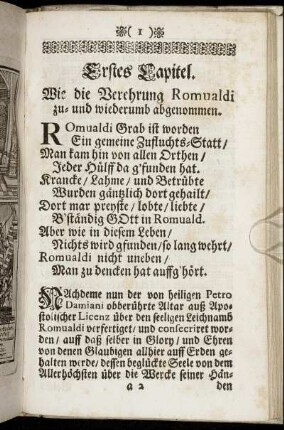 ( 1 )
Erstes Capitel.
Wie die Verehrung Romualdi
zu- und wiederumb abgenommen.
ROmualdi Grab ist worden
Ein gemeine Zufluchts-Statt/
Man kam hin von allen Orthen/
Jeder Hülff da g'funden hat.
Krancke/ Lahme/ und Betrübte
Wurden gäntzlich dort gehailt/
Dort mar preyste/ lobte/ liebte
B'ständig GOtt in Romuald.
Aber wie in diesem Leben/
Nichts wird gfunden/ so lang wehrt/
Romualdi nicht uneben/
Man zu dencken hat auffg'hört.
NAchdeme nun der von heiligen Petro
Damiani obberührte Altar auß Apo-
stolischer Licenz über den seeligen Leichnamb
Romualdi verfertiget/ und consecriret wor-
den/ auff daß selber in Glory/ und Ehren
von denen Glaubigen allhier auff Erden ge-
halten werde/ dessen beglückte Seele von dem
Allerhöchsten über die Wercke seiner Hän-
a 2 den